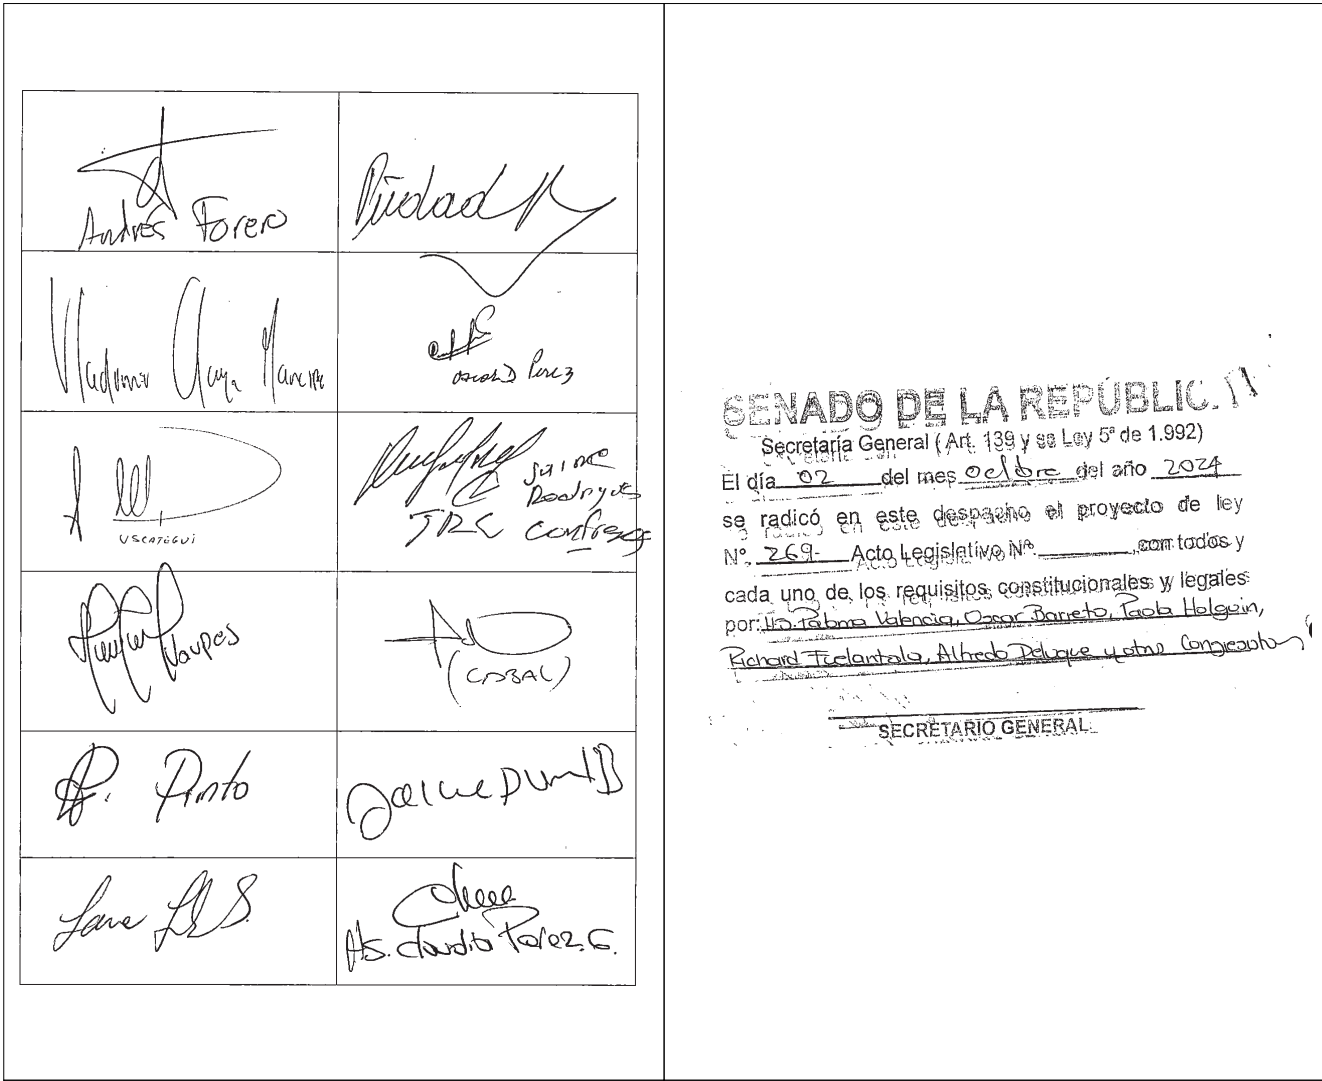 Andrés Forero
Piedad
Vladimir Olaya Mancipe
Oscar D Perez
USCATEGUI
Jaime
Rodríguez
JRC Contreras
Vaupes
(CDBAL)
A. Pinto
Jaime Dumit B
Hs. Claudia Perez. G.
SENADO DE LA REPÚBLIC
Secretaría General ( Art. 139 y ss Ley 5ª de 1.992)
El día 02 del mes Octbre del año 2024
se radicó en este despacho el proyecto de ley
N°. 269- Acto Legislativo N° , con todos y
cada uno de los requisitos constitucionales y legales
por: H.S. Paloma Valencia, Oscar Barreto, Paola Holguin,
Richard Fuelantala, Alfredo Deluque y otros Congresistas
SECRETARIO GENERAL